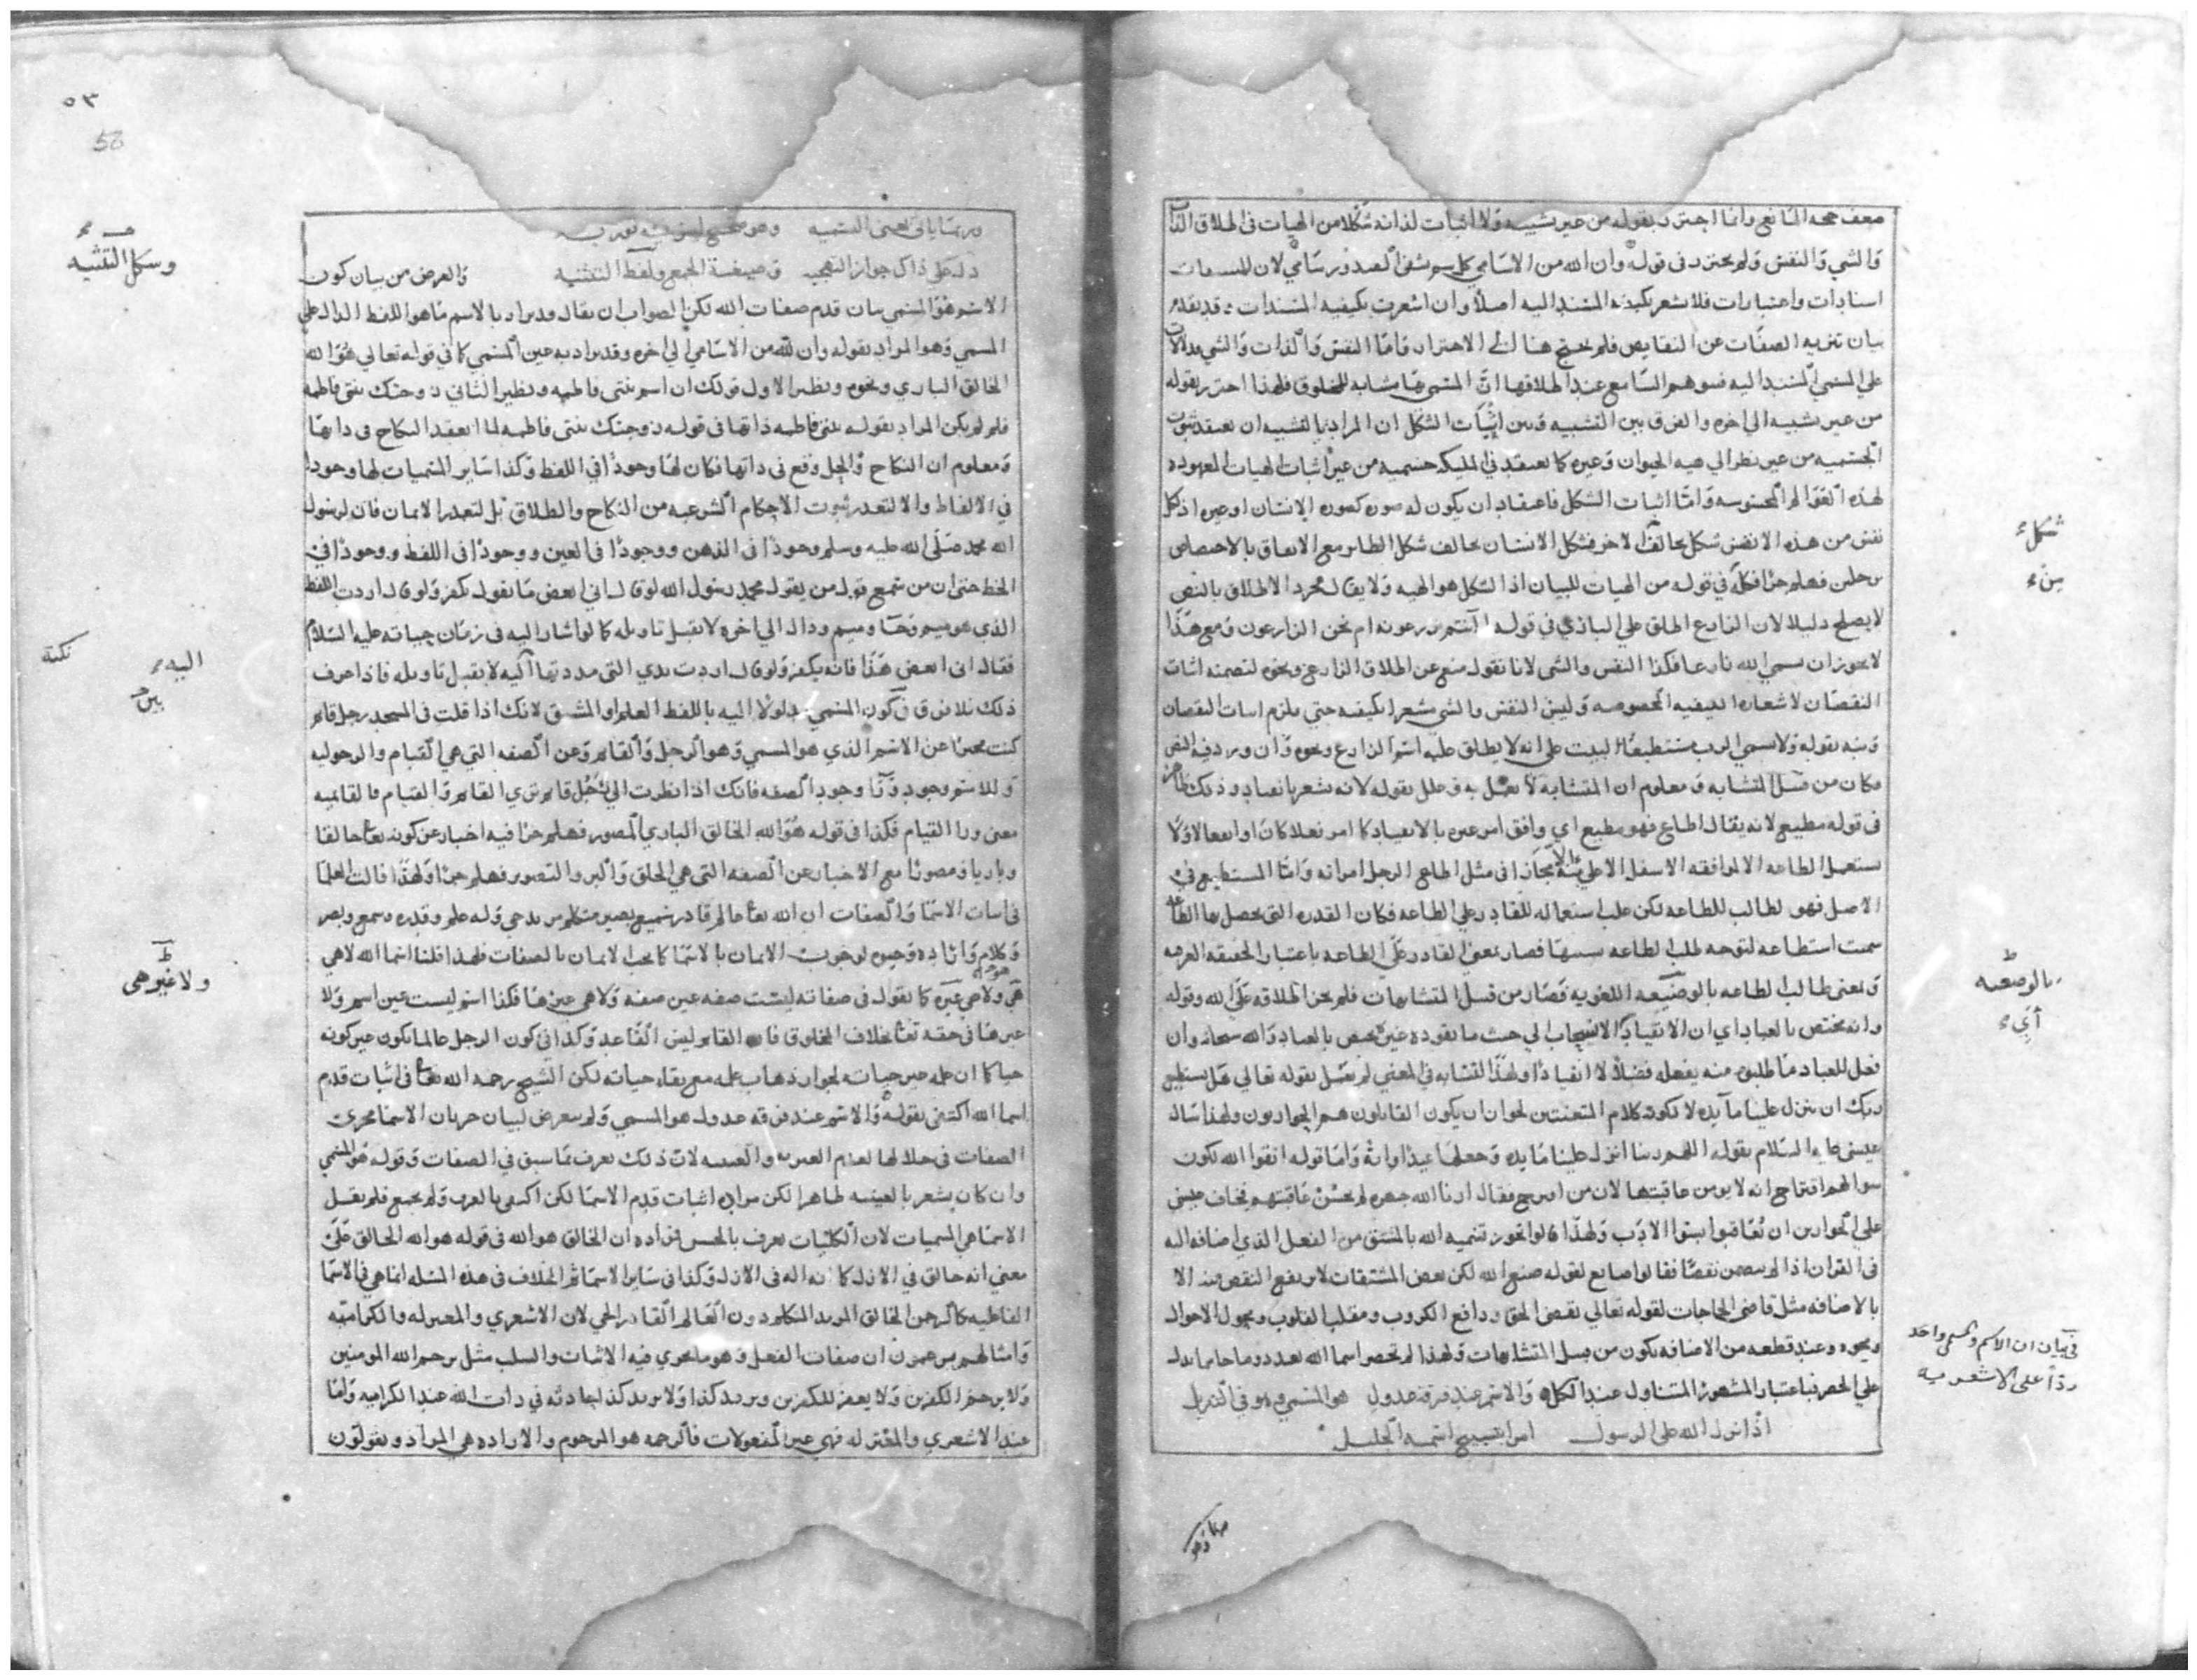 وانما احترز بقوله من غير تشبيه ولا اثبات لذاته شكلا من الهيات في اطلاق الذات
والشي والنفس ولم يحترز في قوله وان الله من الاسامي
اسنادات واعتبارات فلا يشعر بكيفية المسند اليه اصلا وان اشعرت بكيفيه المسندات قد تقدم
بيان تنزيه الصفات عن النقايص فلم يحتج هنا الي الاحتراز فاما النفس والذات والشي
علي المسمي المسند اليه فيتوهم السامع عند اطلاقها ان المسمي بها مشابه للمخلوق فلهذا احترز بقوله
من غير تشبيه الي اخره والفرق بين التشبيه وبين اثبات الشكل ان المراد بالتشبيه ان يعتقد ثبوت
الجسميه من غير نظر الي هيه الحيوان وغيره كما يعتقد في المليكه جسميه من غير اثبات الهيات المعهوده
لهذه العوالم المحسوسه واما اثبات الشكل فاعتقاد ان يكون له صوره كصوره الانسان او غيره اذ لكل
نفس من هذه الانفس شكل يخالف الاخر فشكل الانسان يخالف شكل الطاير مع الاتفاق بالاختصاص
في قوله من الهيات للبيان اذ الشكل هو الهيه ولا يقال مجرد الاطلاق بالنص
لا يصلح دليلا لان الزارع اطلق علي الباري في قوله اانتم تزرعونه ام نحن الزارعون ومع هذا
لا يجوز ان يسمي الله زارعا فكذا النفس والشي لانا نقول منع عن اطلاق الزارع ونحوه لتضمنه اثبات
النقصان لاشعاره الكيفيه المخصوصه وليس النفس والشي مشعرا بكيفيه حتي يلزم اثبات النقصان
ونبه بقوله ولا يسمي الرب مستطيعا البيت علي انه لا يطلق عليه اسم الزارع ونحوه وان ورد فيه النص
فكان من قبيل المتشابه ومعلوم ان المتشابه لا يعمل به وعلل بقوله لانه يشعر بانقياد وذلك ظاهر
في قوله مطيع لانه يقال اطاع فهو مطيع اي وافق امر غيره بالانقياد كما امر فعلا كان او انفعالا ولا
يستعمل الطاعه الا لموافقه الاسفل الاعلي الا مجازا في مثل اطاع الرجل امراته واما المستطيع في
الاصل فهو الطالب للطاعه لكن غلب استعماله للقادر علي الطاعه فكان القدره التي يحصل بها الطاعه
سميت استطاعه لتوجه طلب الطاعه بسببها فصار بمعني القادر علي الطاعه باعتبار الحقيقه العرفيه
وبمعني طالب الطاعه بالوضعيه اللغويه فصار من قبيل المتشابهات فلم يجز اطلاقه علي الله وقوله
وانه يختص بالعباد اي ان الانقياد الانسحاب الي حيث ما يقوده غيره يختص بالعباد والله سبحانه وان
فعل للعباد ما طلبوا منه يفعله فضلا لا انقيادا ولهذا التشابه في المعني لم يعمل بقوله تعالي هل يستطيع
ربك ان ينزل علينا مايده لا لكونه كلام المتعنتين لجواز ان يكون القايلون هم الحواريون ولهذا سال
عيسي عليه السلام بقوله اللهم ربنا انزل علينا مايده وجعلها عيدا واية واما قوله اتقوا الله لكون
سوالهم اقتراح انه لا يومن عاقبتها لان من اقترح فقال ارنا الله جهره لم يحسن عاقبتهم فخاف عيسي
علي الحوارين ان يعاقبوا بسوا الادب ولهذا قالوا تجوز تسميه الله بالمشتق من الفعل الذي اضافه اليه
في القران اذا لم يتضمن نقصا فقالوا صانع لقوله صنع الله لكن بعض المشتقات لا يرتفع النقص منه الا
بالاضافه مثل قاضي الحاجات لقوله تعالي يقضي الحق ودافع الكروب ومقلب القلوب ومحول الاحوال
ونحوه وعند قطعه من الاضافه يكون من قبيل المتشابهات ولهذا لم تحصر اسما الله بعدد وما جا مما يدل
علي الحصر فباعتبار المشهور المتناول عند الكل والاسم عند فرقة عدول هو المسمي وهو في التنزيل
اذ انزل الله علي الرسول امرا بتسبيح اسمه الجليل
شكل
بين
بالوضعيه
اي
في بيان ان الاسم والمسمى واحد
ردا على الاشعرية
٥٣
وربما ياتي بمعنى التسميه وهو صحيح
دله على ذاك جواز التهجي وصيغة الجمع ولفظ التثنيه والغرض من بيان كون
الاسم هو المسمي بيان قدم صفات الله لكن الصواب ان يقال قد يراد بالاسم ما هو اللفظ الدال علي
المسمي وهو المراد بقوله وان لله من الاسامي الي اخره وقد يراد به عين المسمي كما في قوله تعالي هو الله
الخالق الباري ونحوه ونظير الاول قولك ان اسم بنتي فاطمه ونظير الثاني زوجتك بنتي فاطمه
فلو لم يكن المراد بقوله بنتي فاطمه ذاتها في قوله زوجتك بنتي فاطمه لما انعقد النكاح في ذاتها
ومعلوم ان النكاح والحل وقع في ذاتها فكان لها وجودا في اللفظ وكذا ساير المسميات لها وجود
في الالفاظ والا لتعذر ثبوت الاحكام الشرعيه من النكاح والطلاق بل لتعذر الايمان فان لرسول
الله محمد صلى الله عليه وسلم وجودا في الذهن ووجودا في العين ووجودا في اللفظ ووجودا في
الخط حتى ان من سمع قول من يقول محمد رسول الله لو قال اني ابغض ما يقول يكفر ولو قال اردت اللفظ
الذي هو ميم وحا وميم ودال الي اخره لا يقبل تاويله كما لو اشار اليه في زمان حياته عليه السلام
فقال اني ابغض هذا فانه يكفر ولو قال اردت يدي التي مددتها اليه لا يقبل تاويله فاذا عرف
ذلك فلا فرق في كون المسمي مدلولا اليه باللفظ العلم او المشتق لانك اذا قلت في المسجد رجل قايم
كنت مخبرا عن الاسم الذي هو المسمي وهو الرجل والقايم وعن الصفه التي هي القيام والرجوليه
وللاسم وجود ورا وجود الصفه فانك اذا نظرت الي رجل قايم تري القايم والقيام فالقائميه
معنى ورا القيام فكذا في قوله هو الله الخالق الباري المصور فعلم هذا فيه اخبار عن كونه تعالى خالقا
وباريا ومصورا مع الاخبار عن الصفه التي هي الخلق والبر والتصوير فعلم هذا ولهذا قالت العلما
في اثبات الاسما والصفات ان الله تعالى عالم قادر سميع بصير متكلم مريد حي وله علم وقدره وسمع وبصر
وكلام وارادة وحيوه لوجوب الايمان بالاسما كما يجب الايمان بالصفات فلهذا قلنا اسما الله لا هي
هو ولا هي غيره كما نقول في صفاته ليست صفه عين صفه ولا هي غيرها فكذا اسم ليست عين اسم ولا
غيرها في حقه تعالى بخلاف المخلوق فان القايم ليس القاعد وكذا في كون الرجل عالما يكون غير كونه
حيا كما ان علمه غير حياته لجواز ذهاب علمه مع بقاء حياته لكن الشيخ رحمه الله تعالى في اثبات قدم
اسما الله اكتفى بقوله والاسم عند فرقه عدول هو المسمي ولم يتعرض لبيان جريان الاسما مجري
الصفات في حلالها لعدم الغيريه والعينيه لان ذلك يعرف بما سبق في الصفات وقوله هو المسمي
وان كان يشعر بالعينيه ظاهرا لكن مراده اثبات قدم الاسما لكن اكتفى بالعرف ولم يجمع فلم يقل
الاسما هي المسميات لان الكليات يعرف بالجنس فمراده ان الخالق هو الله في قوله هو الله الخالق علي
معني انه خالق في الازل كما انه اله في الازل وكذا في ساير الاسما ثم الخلاف في هذه المسئله انما هي في الاسما
الفاعليه كالرحمن الخالق المريد المتكلم دون العالم القادر الحي لان الاشعري والمعتزله والكراميه
وامثالهم يزعمون ان صفات الفعل وهو ما يجري فيه الاثبات والسلب مثل يرحم الله المومنين
ولا يرحم الكفرين ولا يغفر للكفرين ويريد كذا ولا يريد كذا حادثه في ذات الله عند الكراميه واما
عند الاشعري والمعتزله فهي عين المفعولات فالرحمه هو المرحوم والاراده هي المراد ويقولون
وشكل التثنيه
نكتة
اليه
بين
ولا غير هي